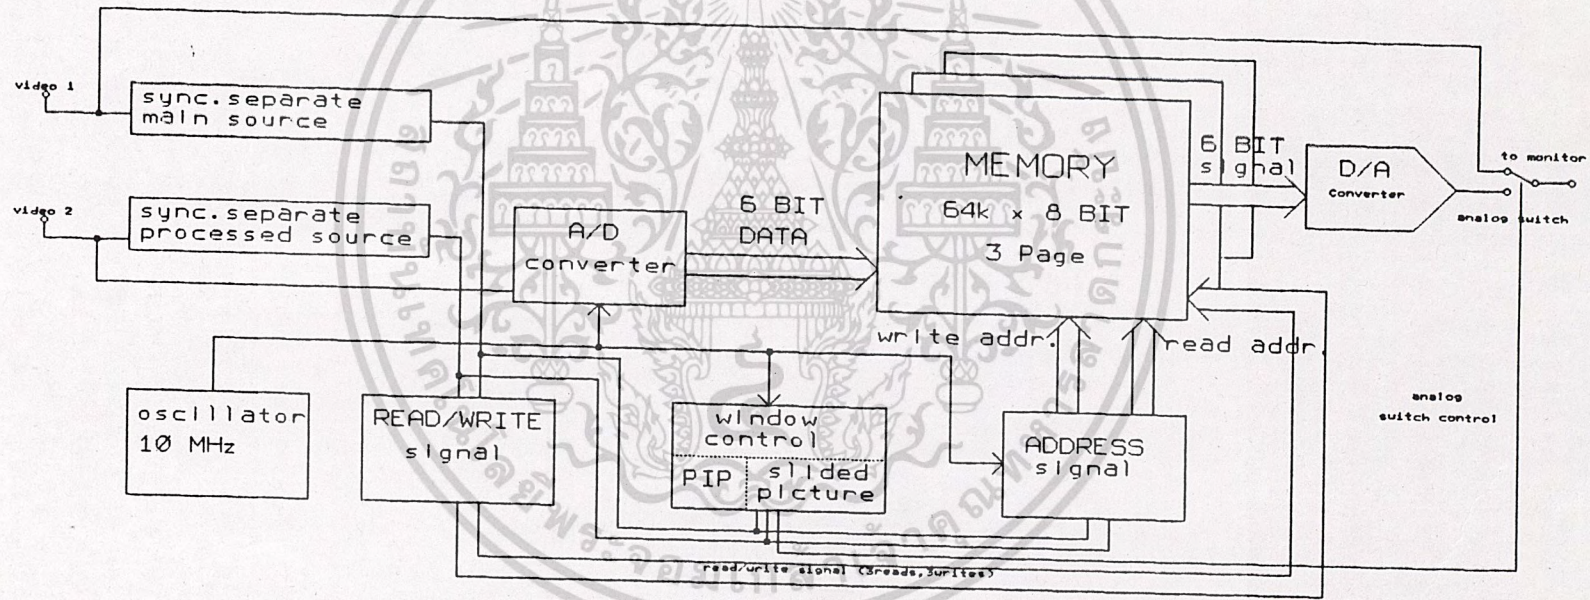 video 1
sync.separate
main source
video 2
sync.separate
processed source
A/D
converter
6 BIT
DATA
MEMORY
64k x 8 BIT
3 Page
6 BIT
signal
D/A
Converter
to monitor
analog switch
write addr.
read addr.
analog
switch control
oscillator
10 MHz
READ/WRITE
signal
window
control
PIP
slided
picture
ADDRESS
signal
read/write signal (3reads,3writes)